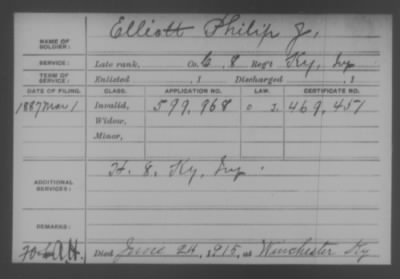 NAME OF SOLDIER: Elliott Philip J.
SERVICE: Late rank, Co. C, 8 Reg't Ky, Inf
TERM OF SERVICE: Enlisted , 1 Discharged , 1
DATE OF FILING. CLASS. APPLICATION NO. LAW. CERTIFICATE NO.
1887 Mar 1 Invalid, 599,968 469,451
Widow,
Minor,
ADDITIONAL SERVICES: H. 8, Ky, Inf.
REMARKS:
Died June 24, 1915, at Winchester Ky